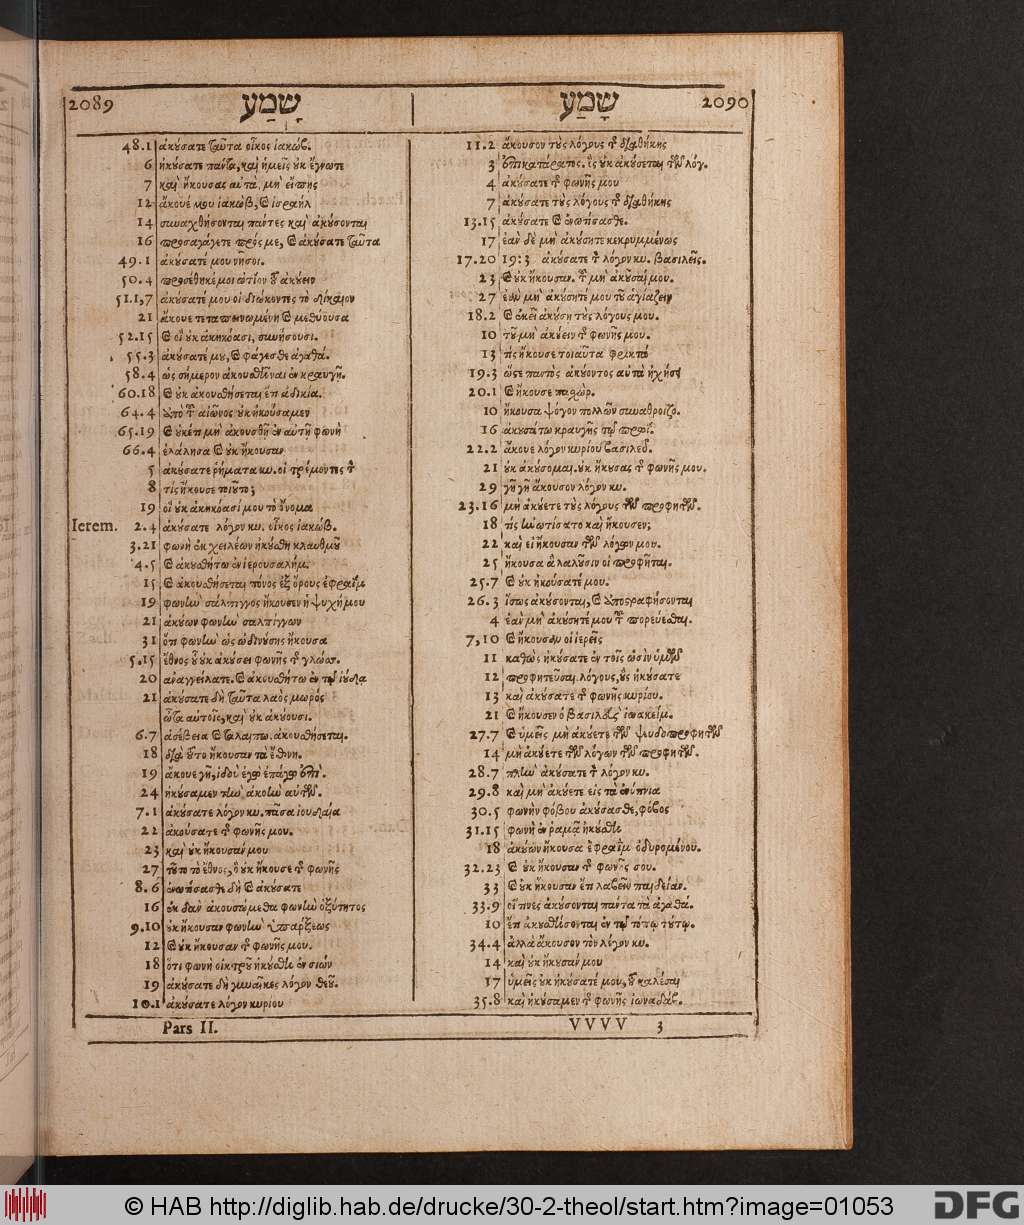 2089 שָׁמַע
48.1 ἀκούσατε ταῦτα οἶκος ἰακώβ.
6 ἠκούσατε πάντα, καὶ ἡμεῖς οὐκ ἔγνωτε
7 καὶ ἤκουσας αὐτά, μὴ εἴπῃς
12 ἄκουέ μου ἰακώβ, καὶ ἰσραήλ
14 συναχθήσονται πάντες καὶ ἀκούσονται
16 προσαγάγετε πρός με, καὶ ἀκούσατε ταῦτα
49.1 ἀκούσατέ μου νῆσοι.
50.4 προσέθηκέ μοι ὠτίον τοῦ ἀκούειν
51.1,7 ἀκούσατέ μου οἱ διώκοντες τὸ δίκαιον
21 ἄκουε τεταπεινωμένη καὶ μεθύουσα
52.15 καὶ οἳ οὐκ ἀκηκόασι, συνήσουσι.
55.3 ἀκούσατέ μου, καὶ φάγεσθε ἀγαθά.
58.4 ὡς σήμερον ἀκουσθῆναι ἐν κραυγῇ.
60.18 καὶ οὐκ ἀκουσθήσεται ἔτι ἀδικία.
64.4 ἀπὸ τοῦ αἰῶνος οὐκ ἠκούσαμεν
65.19 καὶ οὐκέτι μὴ ἀκουσθῇ ἐν αὐτῇ φωνὴ
66.4 ἐλάλησα καὶ οὐκ ἤκουσαν
5 ἀκούσατε ῥήματα κυ. οἱ τρέμοντες τὸν
8 τίς ἤκουσε τοιοῦτο;
19 οἳ οὐκ ἀκηκόασί μου τὸ ὄνομα
Ierem. 2.4 ἀκούσατε λόγον κυ. οἶκος ἰακώβ.
3.21 φωνὴ ἐκ χειλέων ἠκούσθη κλαυθμοῦ
4.5 καὶ ἀκουσθήτω ἐν ἱερουσαλήμ.
15 καὶ ἀκουσθήσεται πόνος ἐξ ὄρους ἐφραΐμ
19 φωνὴν σάλπιγγος ἤκουσεν ἡ ψυχή μου
21 ἀκούων φωνὴν σαλπίγγων
31 ὅτι φωνὴν ὡς ὠδινούσης ἤκουσα
5.15 ἔθνος οὗ οὐκ ἀκούσει φωνῆς τῆς γλώσ.
20 ἀναγγείλατε. καὶ ἀκουσθήτω ἐν τῷ ἰούδα
21 ἀκούσατε δὴ ταῦτα λαὸς μωρός
ὦτα αὐτοῖς, καὶ οὐκ ἀκούουσι.
6.7 ἀσέβεια καὶ ταλαιπω. ἀκουσθήσεται.
18 διὰ τοῦτο ἤκουσαν τὰ ἔθνη.
19 ἄκουε γῆ, ἰδοὺ ἐγὼ ἐπάγω ἐπὶ.
24 ἠκούσαμεν τὴν ἀκοὴν αὐτῶν.
7.1 ἀκούσατε λόγον κυ. πᾶσα ἰουδαία
22 ἀκούσατε τῆς φωνῆς μου.
23 καὶ οὐκ ἤκουσάν μου
27 τοῦτο τὸ ἔθνος, ὃ οὐκ ἤκουσε τῆς φωνῆς
8.6 ἐνωτίσασθε δὴ καὶ ἀκούσατε
16 ἐκ δαν ἀκουσόμεθα φωνὴν ὀξύτητος
9.10 οὐκ ἤκουσαν φωνὴν ὑπάρξεως
12 καὶ οὐκ ἤκουσαν τῆς φωνῆς μου.
18 ὅτι φωνὴ οἴκτρου ἠκούσθη ἐν σιών
19 ἀκούσατε δὴ γυναῖκες λόγον θεοῦ.
10.1 ἀκούσατε λόγον κυρίου
Pars II.
שָׁמַע 2090
11.2 ἄκουσον τοὺς λόγους τῆς διαθήκης
3 ἐπικατάρατος. ὃς οὐκ ἀκούσεται τῶν λόγ.
4 ἀκούσατε τῆς φωνῆς μου
7 ἀκούσατε τοὺς λόγους τῆς διαθήκης
13.15 ἀκούσατε καὶ ἐνωτίσασθε.
17 ἐὰν δὲ μὴ ἀκούσητε κεκρυμμένως
17.20 19:3 ἀκούσατε τὸν λόγον κυ. βασιλεῖς.
23 καὶ οὐκ ἤκουσαν. τοῦ μὴ ἀκοῦσαί μου.
27 ἐὰν μὴ ἀκούσητέ μου τοῦ ἁγιάζειν
18.2 καὶ ἐκεῖ ἀκούσῃ τοὺς λόγους μου.
10 τοῦ μὴ ἀκούειν τῆς φωνῆς μου.
13 τίς ἤκουσε τοιαῦτα φρικτὰ
19.3 ὥστε παντὸς ἀκούοντος αὐτὰ ἠχήσει
20.1 καὶ ἤκουσε πασχώρ.
10 ἤκουσα ψόγον πολλῶν συναθροιζο.
16 ἀκουσάτω κραυγῆς τῷ πρωΐ.
22.2 ἄκουε λόγον κυρίου βασιλεῦ.
21 οὐκ ἀκούσομαι. οὐκ ἤκουσας τῆς φωνῆς μου.
29 γῆ γῆ ἄκουσον λόγον κυ.
23.16 μὴ ἀκούετε τοὺς λόγους τῶν προφητῶν.
18 τίς ἐνωτίσατο καὶ ἤκουσεν;
22 καὶ εἰ ἤκουσαν τῶν λόγων μου.
25 ἤκουσα ἃ λαλοῦσιν οἱ προφῆται.
25.7 καὶ οὐκ ἠκούσατέ μου.
26.3 ἴσως ἀκούσονται, καὶ ἀποστραφήσονται
4 ἐὰν μὴ ἀκούσητέ μου τοῦ πορεύεσθαι.
7,10 καὶ ἤκουσαν οἱ ἱερεῖς
11 καθὼς ἠκούσατε ἐν τοῖς ὠσὶν ὑμῶν
12 προφητεῦσαι. λόγους, οὓς ἠκούσατε
13 καὶ ἀκούσατε τῆς φωνῆς κυρίου.
21 καὶ ἤκουσεν ὁ βασιλεὺς ἰωακείμ.
27.7 καὶ ὑμεῖς μὴ ἀκούετε τῶν ψευδοπροφητῶν
14 μὴ ἀκούετε τῶν λόγων τῶν προφητῶν.
28.7 πλὴν ἀκούσατε τὸν λόγον κυ.
29.8 καὶ μὴ ἀκούετε εἰς τὰ ἐνύπνια
30.5 φωνὴν φόβου ἀκούσασθε, φόβος
31.15 φωνὴ ἐν ῥαμᾷ ἠκούσθη
18 ἀκούων ἤκουσα ἐφραῒμ ὀδυρομένου.
32.23 καὶ οὐκ ἤκουσαν τῆς φωνῆς σου.
33 καὶ οὐκ ἤκουσαν ἔτι λαβεῖν παιδείαν.
33.9 οἵτινες ἀκούσονται πάντα τὰ ἀγαθά.
10 ἔτι ἀκουσθήσονται ἐν τῷ τόπῳ τούτῳ.
34.4 ἀλλὰ ἄκουσον τὸν λόγον κυ.
14 καὶ οὐκ ἤκουσάν μου
17 ὑμεῖς οὐκ ἠκούσατέ μου, τοῦ καλέσαι
35.8 καὶ ἠκούσαμεν τῆς φωνῆς ἰωναδάβ.
VVVV 3
© HAB http://diglib.hab.de/drucke/30-2-theol/start.htm?image=01053
DFG